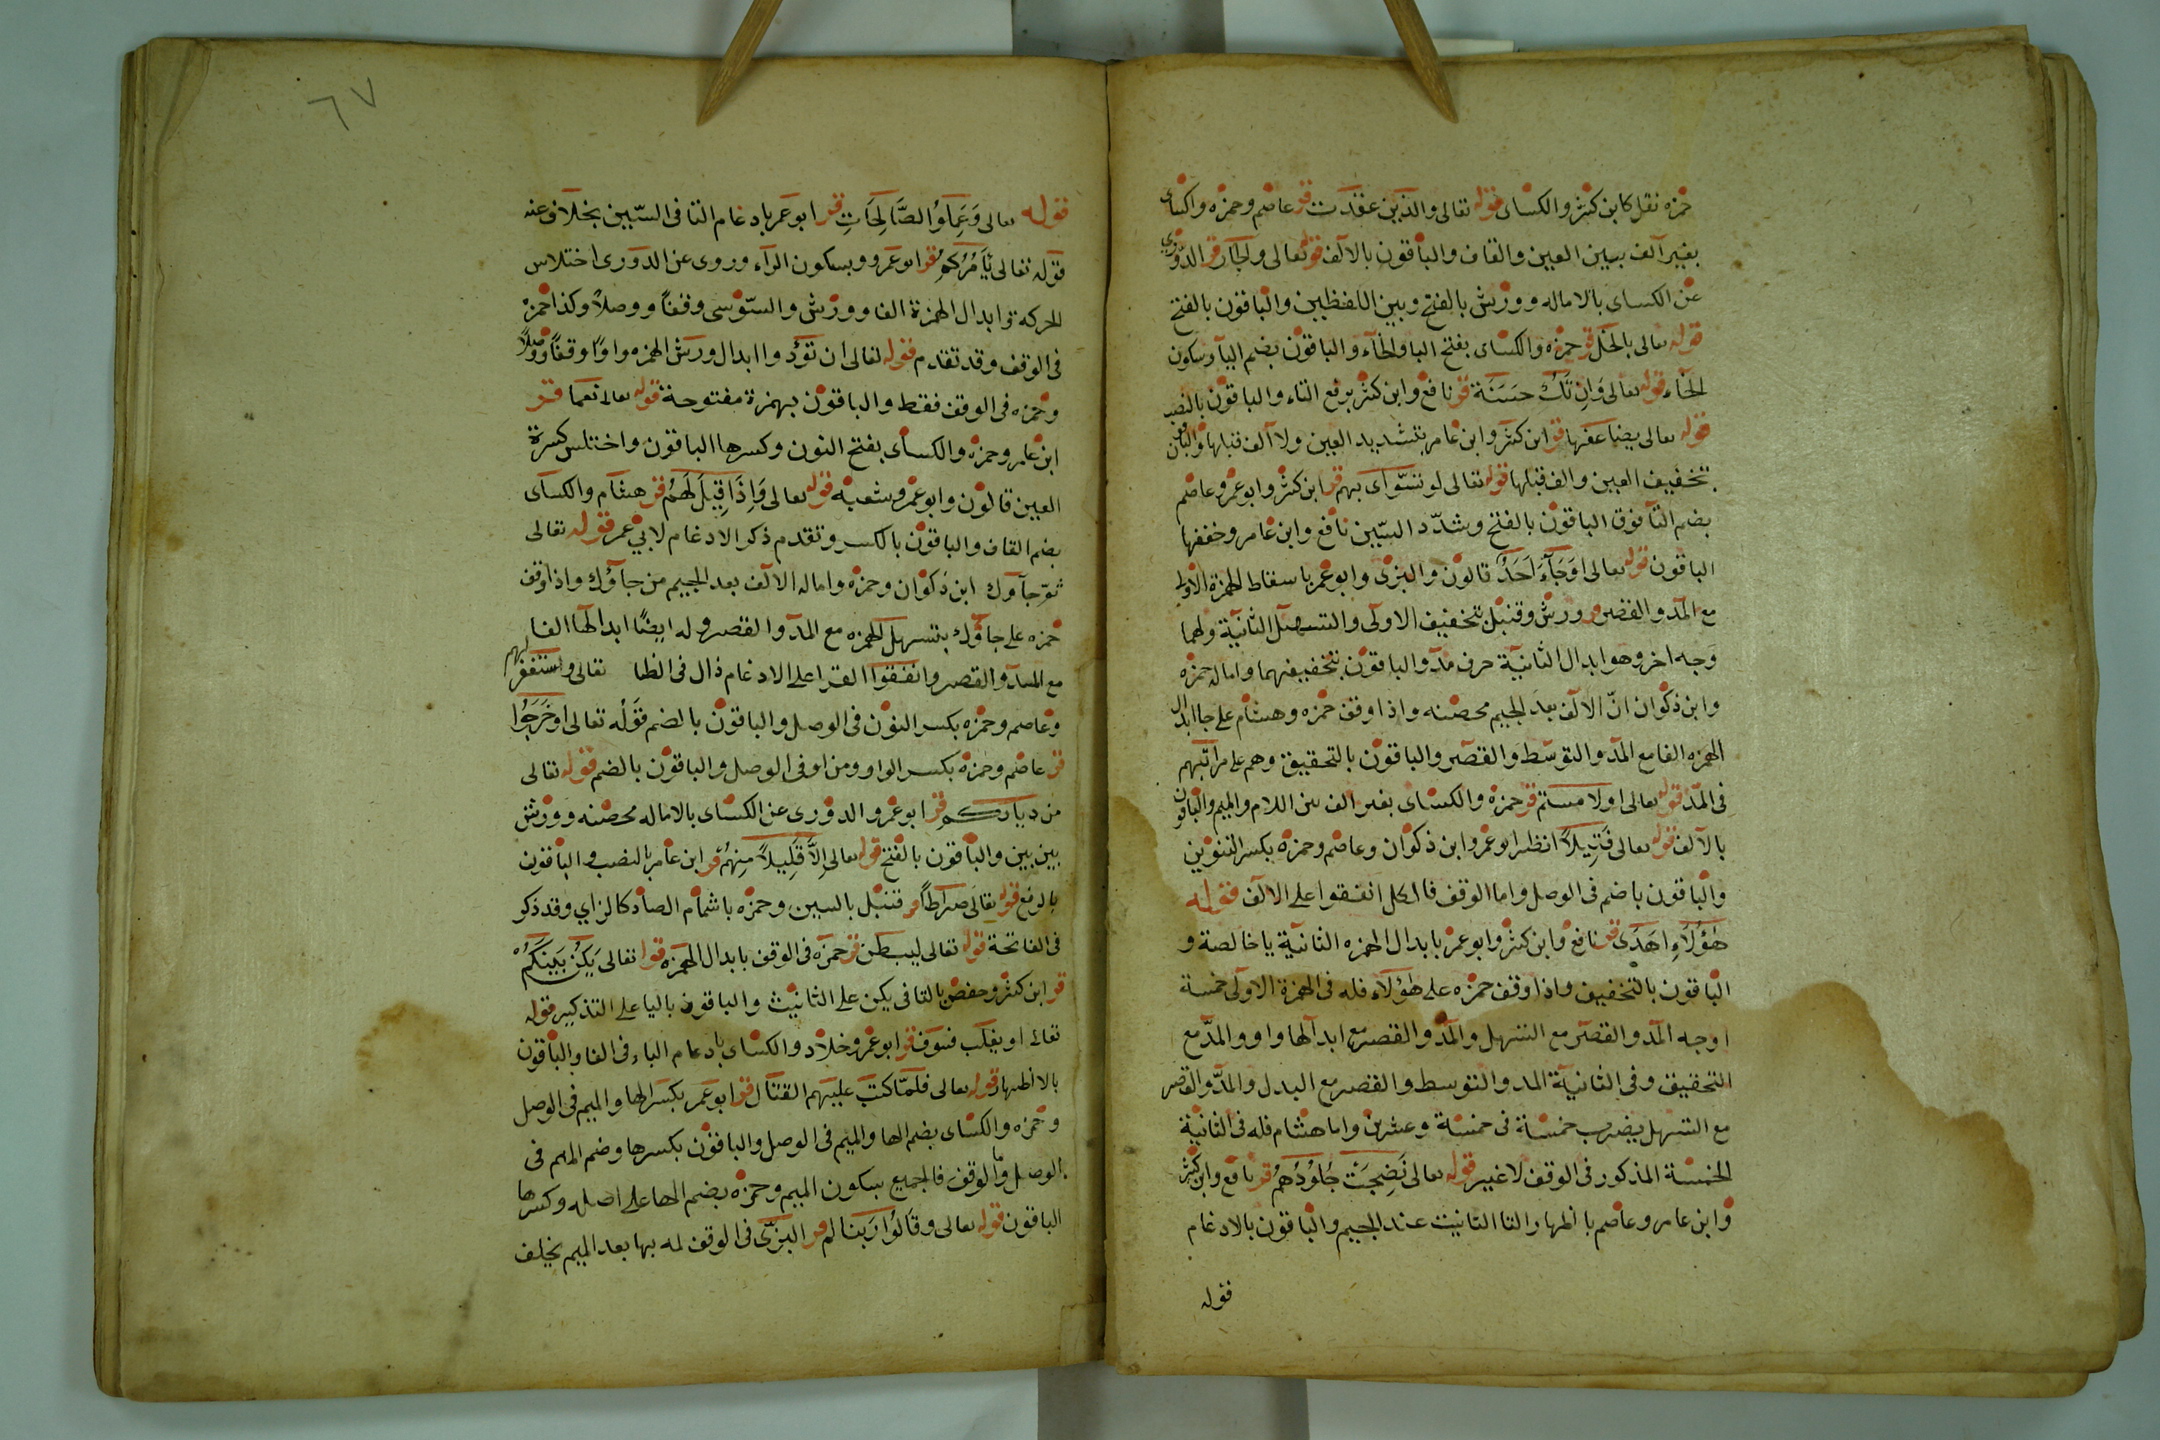 حمزه نقل كابن كثير والكسائى قوله تعالى والذين عقدت قر عاصم وحمزه والكسائى
بغير الف بين العين والقاف والباقون بالالف قوله تعالى والجار قر الدورى
عن الكساى بالاماله وورش بالفتح وبين اللفظين والباقون بالفتح
قوله تعالى بالبخل قر حمزه والكساى بفتح البا والخاء والباقون بضم الباء وسكون
الخاء قوله تعالى وَاِن تَكُ حَسَنَة قر نافع وابن كثير برفع التاء والباقون بالنصب
قوله تعالى يضاعفها قر ابن كثير وابن عامر بتشديد العين ولا الف قبلها والباقون
بتخفيف العين والف قبلها قوله تعالى لو تسّوى بهم قر ابن كثير وابو عمرو وعاصم
بضم التا فوق الباقون بالفتح وشدّد السّين نافع وابن عامر وخففها
الباقون قوله تعالى اوَجَآءَ اَحَدٌ قالون والبزى وابو عمر باسقاط الهمزة الاولى
مع المد والقصر وورش وقنبل بتخفيف الاولى والتسهيل الثانية ولهما
وجه اخر وهو ابدال الثانية حرف مد والباقون بتخفيفهما واماله حمزه
وابن ذكوان انّ الالف بعد الجيم محضنه واذا وقف حمزه وهشام على جا ابدال
الهمزه الفا مع المد والتوسّط والقصر والباقون بالتحقيق وهم على مراتبهم
فى المدّ قوله تعالى اولامستم قر حمزه والكساى بغير الف بين اللام والميم والباقون
بالالف قوله تعالى فَتِيلاً انظر ابو عمرو ابن ذكوان وعاصم وحمزه بكسر التنوين
والباقون باضم فى الوصل واما الوقف فالكل اتفقوا على الالف قوله
هٰؤُلَاءِ اهَدَى قر نافع وابن كثير وابو عمر بابدال الهمزه الثانية ياخالصة و
الباقون بالتخفيف واذا وقف حمزه على هؤلاء فله فى الهمزة الاولى خمسة
اوجه المد والقصر مع التسهيل والمد والقصر مع ابدالها واو والمدّ مع
التحقيق وفى الثانية المد والتوسط والقصر مع البدل والمدّ والقصر
مع التسهيل يضرب خمسة فى خمسة وعشرين واما هشام فله فى الثانية
الخمسة المذكور فى الوقف لاغير قوله تعالى نَضِجَتْ جُلُوْدُهُمْ قر نافع وابن كثير
وابن عامر وعاصم باظهار التا التانيث عند الجيم والباقون بالادغام
قوله
٦٧
قوله تعالى وَعَمِلُوْا الصَّالِحَاتِ قر ابو عمر بادغام التا فى السّين بخلاف عنه
قوله تعالى يَأمُرُكُمْ قر ابو عمرو وبسكون الراء وروى عن الدورى اختلاس
الحركة وابدال الهمزة الفا وورش والسّوسى وقفاً ووصلاً وكذا حمزه
فى الوقف وقد تقدم قوله تعالى ان تؤدوا ابدال ورش الهمزه واوًا وقفاً ووصلاً
وحمزه فى الوقف فقط والباقون بهمزة مفتوحة قوله تعالى نعما قر
ابن عامر وحمزه والكساى بفتح النون وكسرها الباقون واختلس كسرة
العين قالون وابو عمرو وشعبه قوله تعالى وَاِذَا قِيْلَ لَهُمْ قر هشام والكساى
بضم القاف والباقون بالكسر وتقدم ذكر الادغام لابي عمر قوله تعالى
ثمّ جآءوك ابن ذكوان وحمزه واماله الالف بعد الجيم من جاؤك واذا وقف
حمزه على جاؤك بتسهيل الهمزه مع المدّ والقصر وله ايضًا ابدالها الفا
مع المد والقصر واتفقوا القرا على الادغام ذال فى الظا تعالى واستغفر لهم
وعاصم وحمزه بكسر النون فى الوصل والباقون بالضم قَوْلُه تعالى اوِخْرُجُوا
قر عاصم وحمزه بكسر الواو ومن او فى الوصل والباقون بالضم قوله تعالى
من دياركم قر ابو عمرو الدورى عن الكساى بالاماله محضنه وورش
بين بين والباقون بالفتح قوله تعالى اِلاَّ قَلِيلاً مِنهُمْ قر ابن عامر بالنصب والباقون
بالرفع قوله تعالى صراطاً قر قنبل بالسين وحمزه باشمام الصاد كالزاي وقد ذكر
فى الفاتحة قوله تعالى ليبطئن قر حمزه فى الوقف بابدال الهمزة قوله تعالى يَكُنْ بَيْنَكُمْ
قر ابن كثير وحفص بالتا فى يكن على التانيث والباقون باليا على التذكير قوله
تعالى او يغلب فسوف قر ابو عمرو وخلاد والكساى بادغام الباء فى الفا والباقون
بالاظهار قوله تعالى فلمّا كتب عليهم القتال قر ابو عمر بكسر الها والميم فى الوصل
وحمزه والكساى بضم الها والميم فى الوصل والباقون بكسرها وضم الميم فى
الوصل واما الوقف فالجميع بسكون الميم وحمزه بضم الها على اصله وكسرها
الباقون قوله تعالى وقَالُوْا رَبنا لم قر البزّى فى الوقف لمه بها بعد الميم بخلف